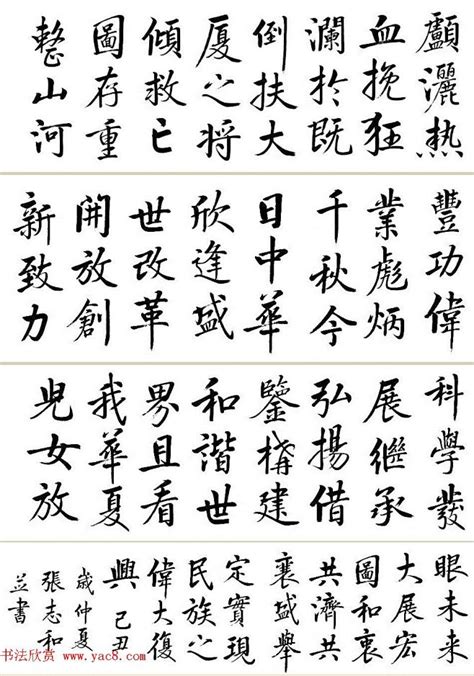 顱灑熱
血挽狂
瀾於既
倒扶大
廈之將
傾救亡
圖存重
整山河
豐功偉
業彪炳
千秋今
日中華
欣逢盛
世改革
開放創
新致力
科學發
展繼承
弘揚借
鑒構建
和諧世
界且看
我華夏
兒女放
眼未来
大展宏
圖和衷
共濟共
襄盛舉
定實現
民族之
偉大復
興己丑
歲仲夏
張志和
並書
书法欣赏 www.yac8.com